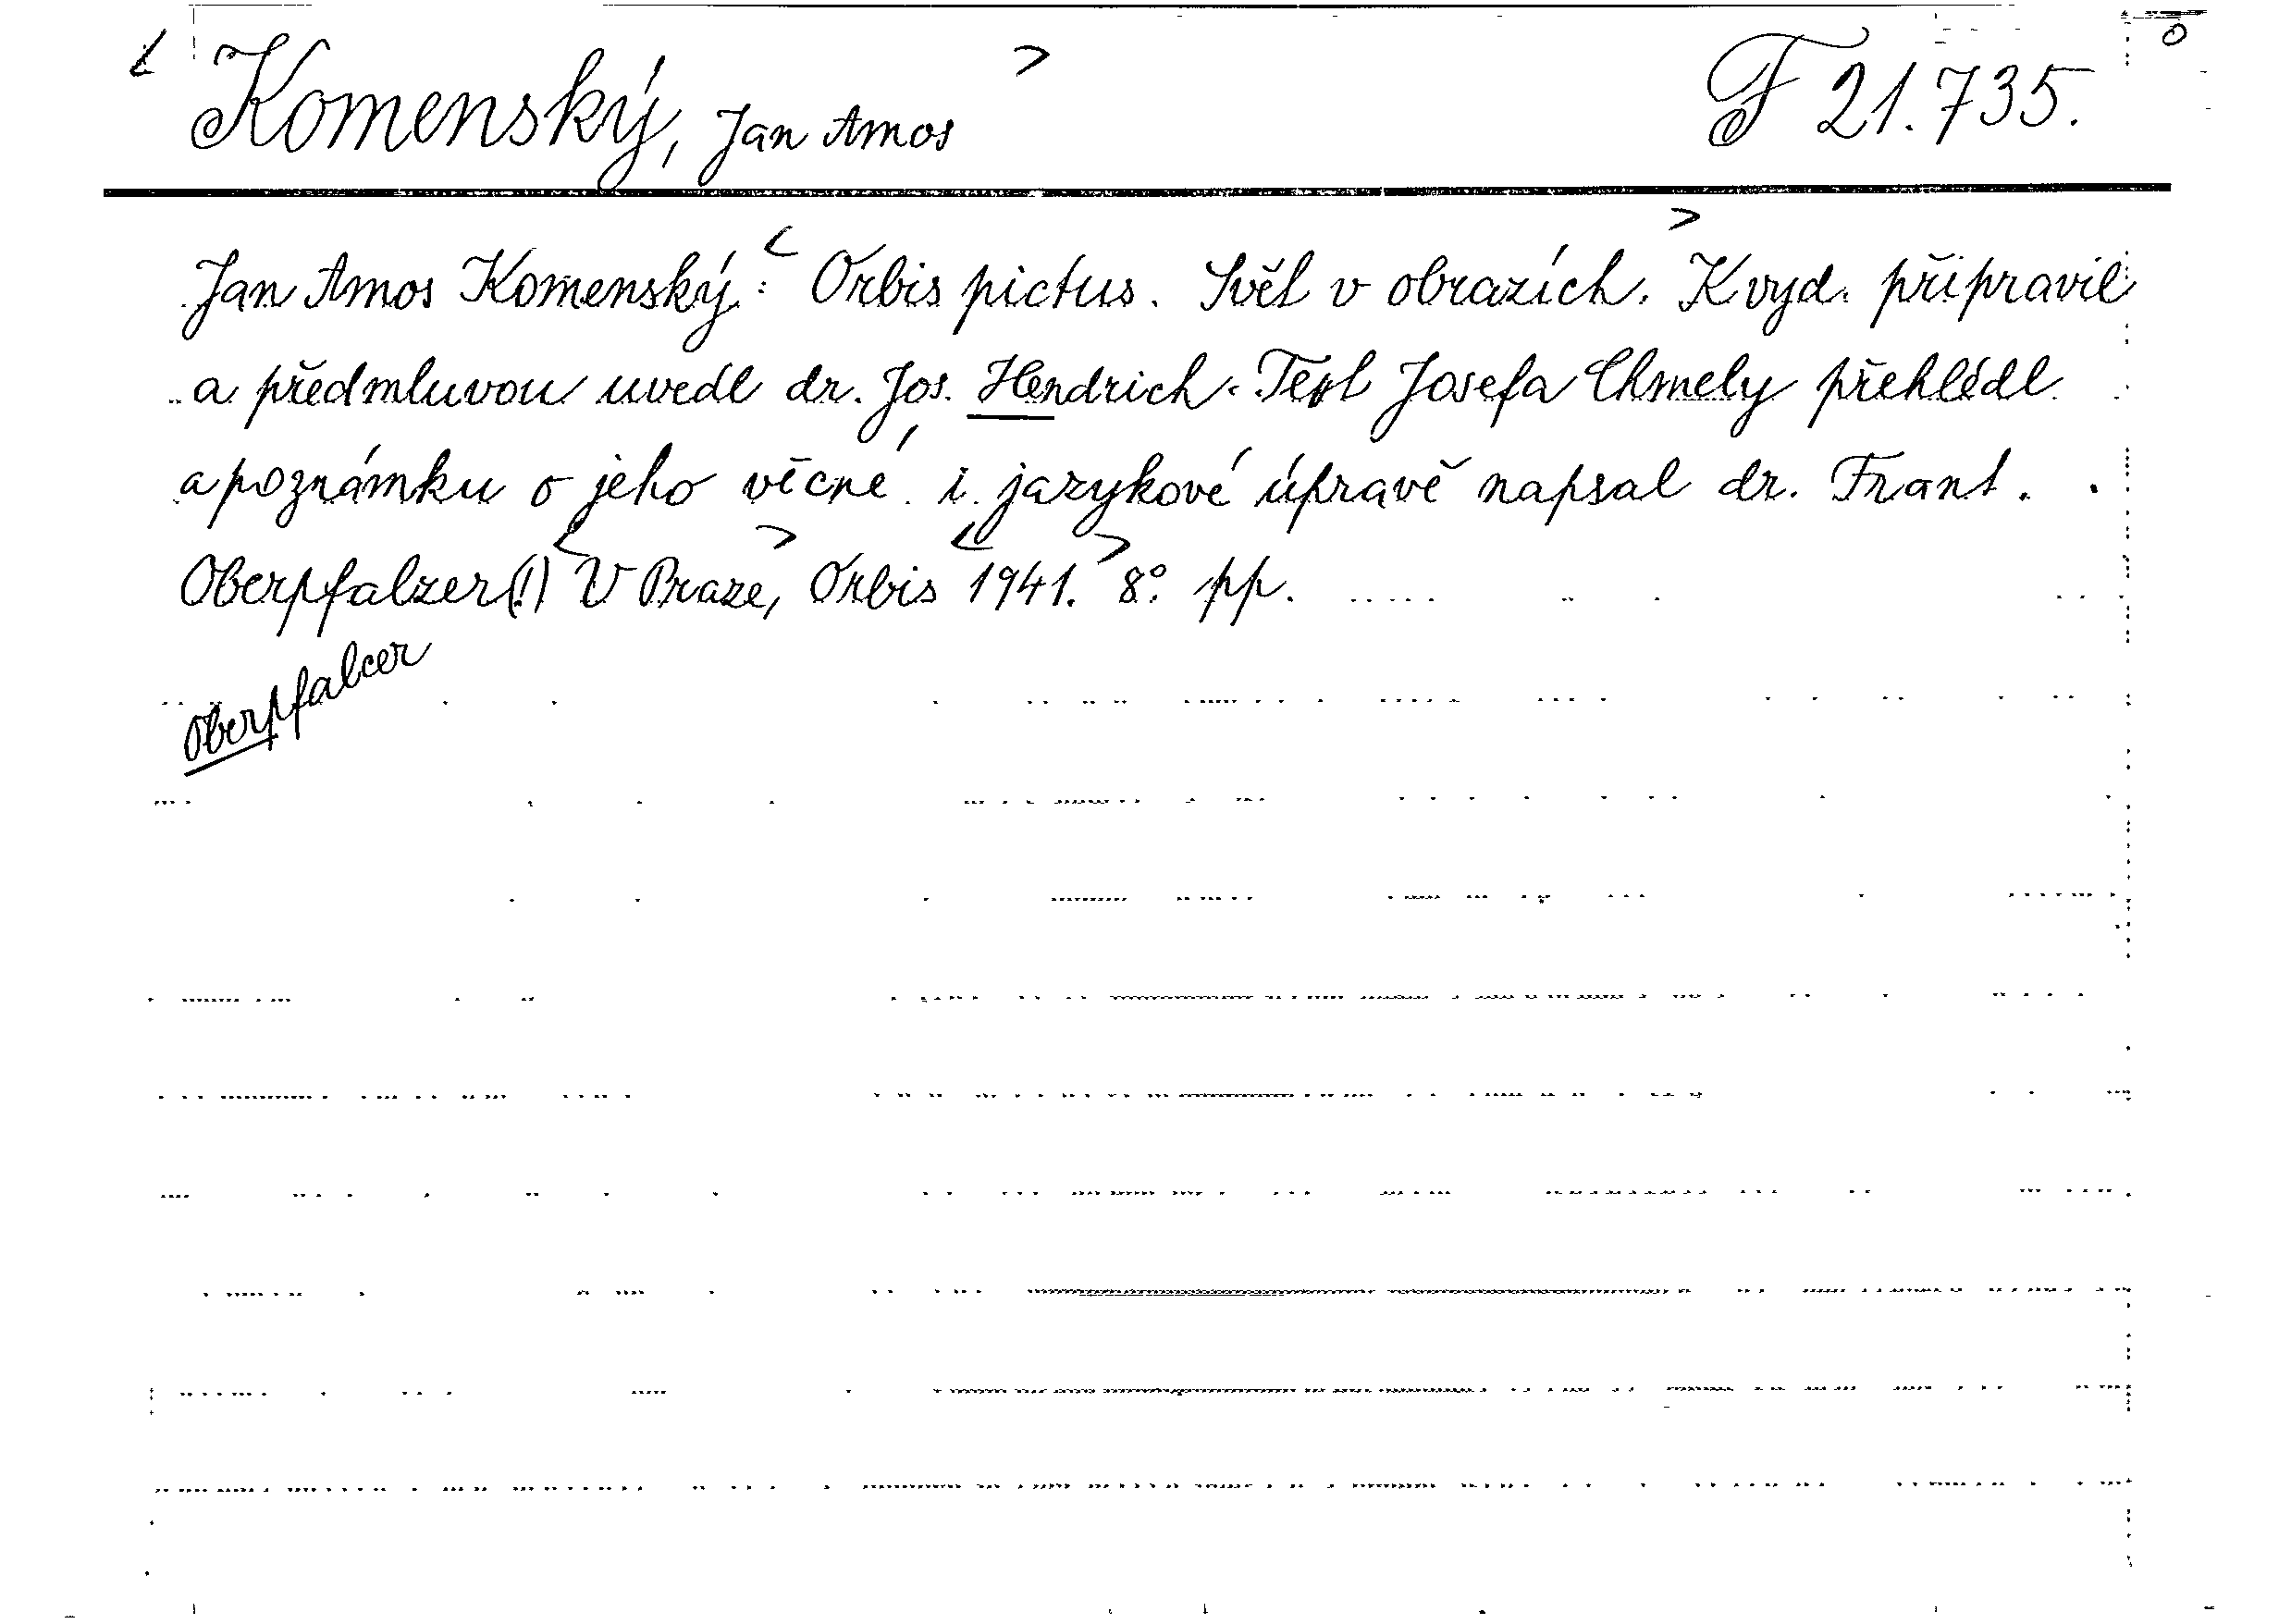 < Komenský, Jan Amos > F 21.735.
Jan Amos Komenský: < Orbis pictus. Svět v obrazích. > K vyd. připravil
a předmluvou uvedl dr. Jos. Hendrich. Text Josefa Chmely přehlédl
a poznámku o jeho věcné i jazykové úpravě napsal dr. Frant.
Oberpfalzer(!) < V Praze, > Orbis < 1941. > 8° pp.
Oberpfalcer